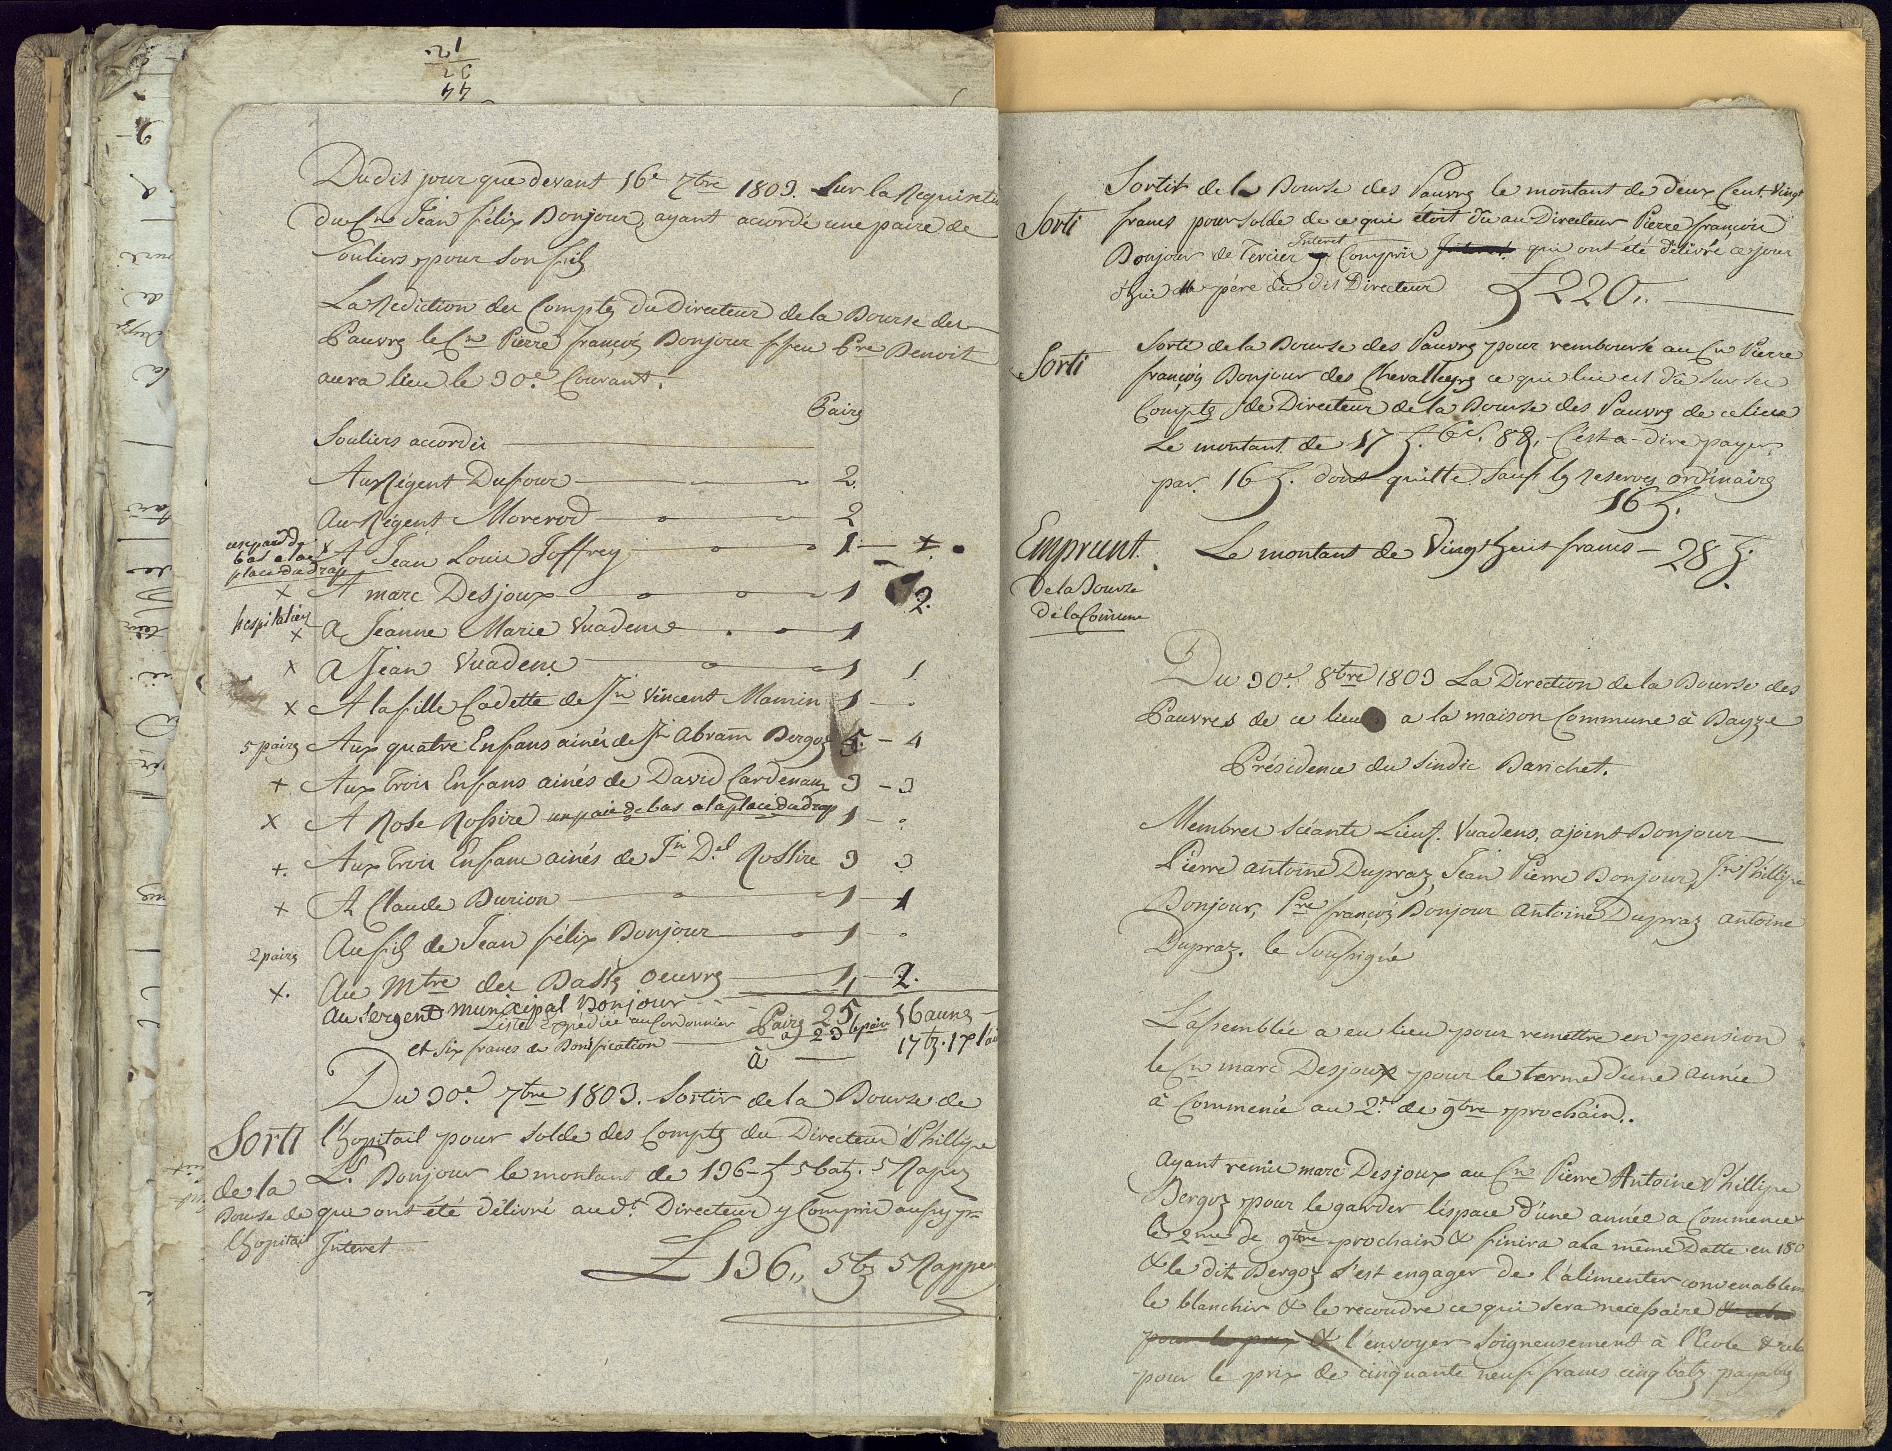 Dudit jour que devant 16e 7bre 1803. Sur la Requisition
du Cn Jean félix Bonjour, ayant accordé une paire de
Souliers pour son fils
La Rediction des Comptes du Directeur de la Bourse des
Pauvres le Cn Pierre françois Bonjour ffeu Pre Benoit
aura lieu le 30e Courant.
Paires
Souliers accordés
Au Régent Dufour 2.
Au Régent Morerod 2
une paire de bas a la place du drap x A Jean Louis Joffrey 1
x A marc Desjoux 1 2.
hospitalier x A Jeanne Marie Vuadens 1
x A Jean Vuadens 1 1
x A la fille Cadette de Jn Vincent Mamin 1
5 paires Aux quatre Enfans ainés de Jn Abram Bergoz 5. 4
x Aux trois Enfans ainés de David Cardenaux 3 3
x A Rose Rossire une paire de bas a la place du drap 1
x. Aux trois Enfans ainés de Jn Dl Rossire 3 3
x A Claude Burion 1 1
Au fils de Jean félix Bonjour 1
2 paires
x. Au Mtre des Basses oeuvres 1 2.
Au Sergent municipal Bonjour
Liste Expédiée au Cordonnier Paires 25 16 aunes
et Six francs de Bonification à 23 le paire 17 bz. 17
à
Du 30e 7bre 1803. Sortir de la Bourse de
Sorti l'hopitail pour solde des Comptes du Directeur Phillipe
de la Ls Bonjour le montant de 136 £ 5 batz. 5 Rapes
Bourse de que ont été délivré audt Directeur y Compris aussy pr
l'hopital Interet
£ 136,, 5 bz 5 Rappes
Sortir de la Bourse des Pauvres le montant de deux Cent Vingt
Sorti francs pour solde de ce qui étoit dû au Directeur Pierre françois
Bonjour de Tercier y Compris Interet qui ont été délivré ce jour
d'hui au père du dit Directeur £ 220,.
Sorti de la Bourse des Pauvres pour remboursé au Cn Pierre
Sorti françois Bonjour des Chevalleyres ce qui lui est dû sur ses
Comptes de Directeur de la Bourse des Pauvres de ce lieu
Le montant de 17 £. 6 bz. 8 R, C'est-a-dire payer
par 16 £. dont quitte sauf les reserves ordinaires
16 £.
Emprunt. Le montant de Vingt huit francs — 28 £.
De la Bourse
de la Comune
Du 30e 8bre 1803 La Direction de la Bourse des
Pauvres de ce lieu a la maison Commune à Bayze
Présidence du Sindic Barichet.
Membres Séants Lieut. Vuadens, ajoint Bonjour
Pierre antoine Dupraz, Jean Pierre Bonjour, Jn Phillipe
Bonjour, Pre françois Bonjour Antoine Dupraz antoine
Dupraz. le Soussigné
L'assemblée a eu lieu pour remettre en pension
le Cn marc Desjoux pour le terme d'une année
à Commencé au 2e de 9bre prochain.
Ayant remis marc Desjoux au Cn Pierre Antoine Phillipe
Bergoz pour le garder l'espace d'une année a Commencer
le 2me de 9bre prochain & finira a la même Datte en 180
& le dit Bergoz s'est engager de l'alimenter convenablem
le blanchir & le recoudre ce qui sera necessaire & cela
pour le prix & l'envoyer soigneusement à l'Ecole & cela
pour le prix de cinquante neuf francs cinq batz payables